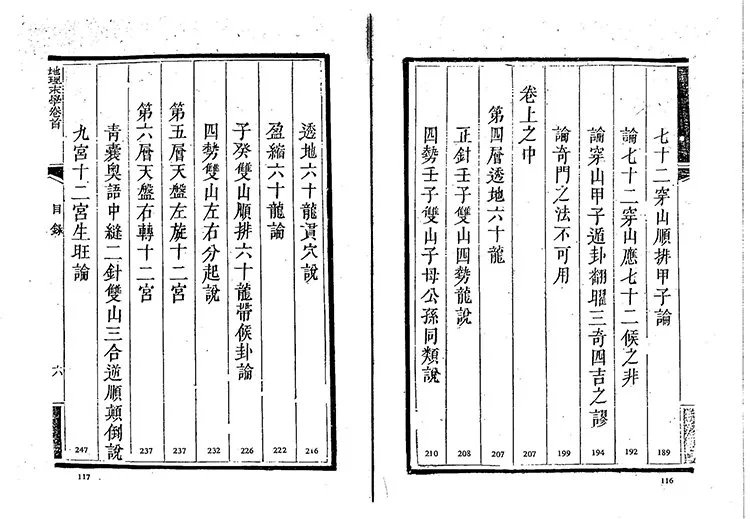 七十二穿山順排甲子論 189
論七十二穿山應七十二候之非 192
論穿山甲子遁卦翻瞿三奇四吉之謬 194
論奇門之法不可用 199
卷上之中 207
第四層透地六十龍 207
正針壬子雙山四勢龍說 208
四勢壬子雙山子母公孫同類說 210
116
透地六十龍貫穴說 216
盈縮六十龍論 222
子癸雙山順排六十龍帶候卦論 226
四勢雙山左右分起說 232
第五層天盤左旋十二宮 237
第六層天盤右轉十二宮 237
青囊奧語中縫二針雙山三合逆順顛倒說
九宮十二宮生旺論 247
地理末學卷首
目錄
六
117